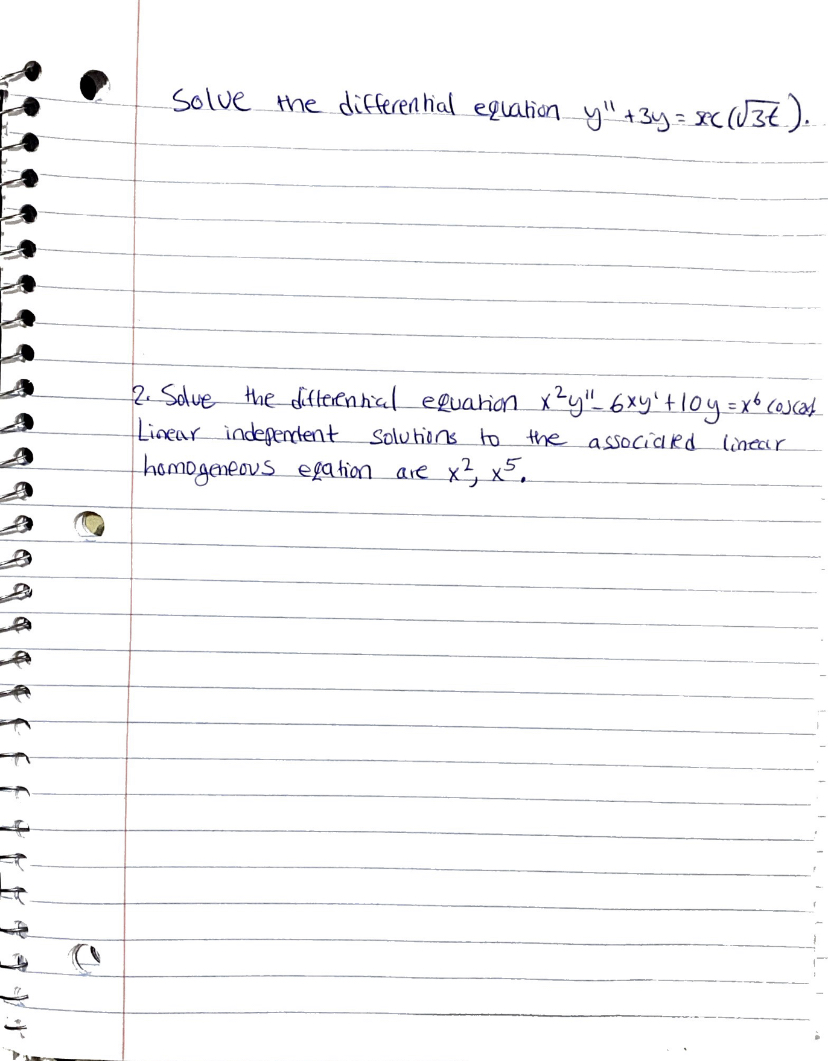 Solve the differential equation y'' + 3y = sec(√3t).
2. Solve the differential equation x²y'' - 6xy' + 10y = x⁶
Linear independent solutions to the associated linear
homogeneous eqation are x², x⁵.